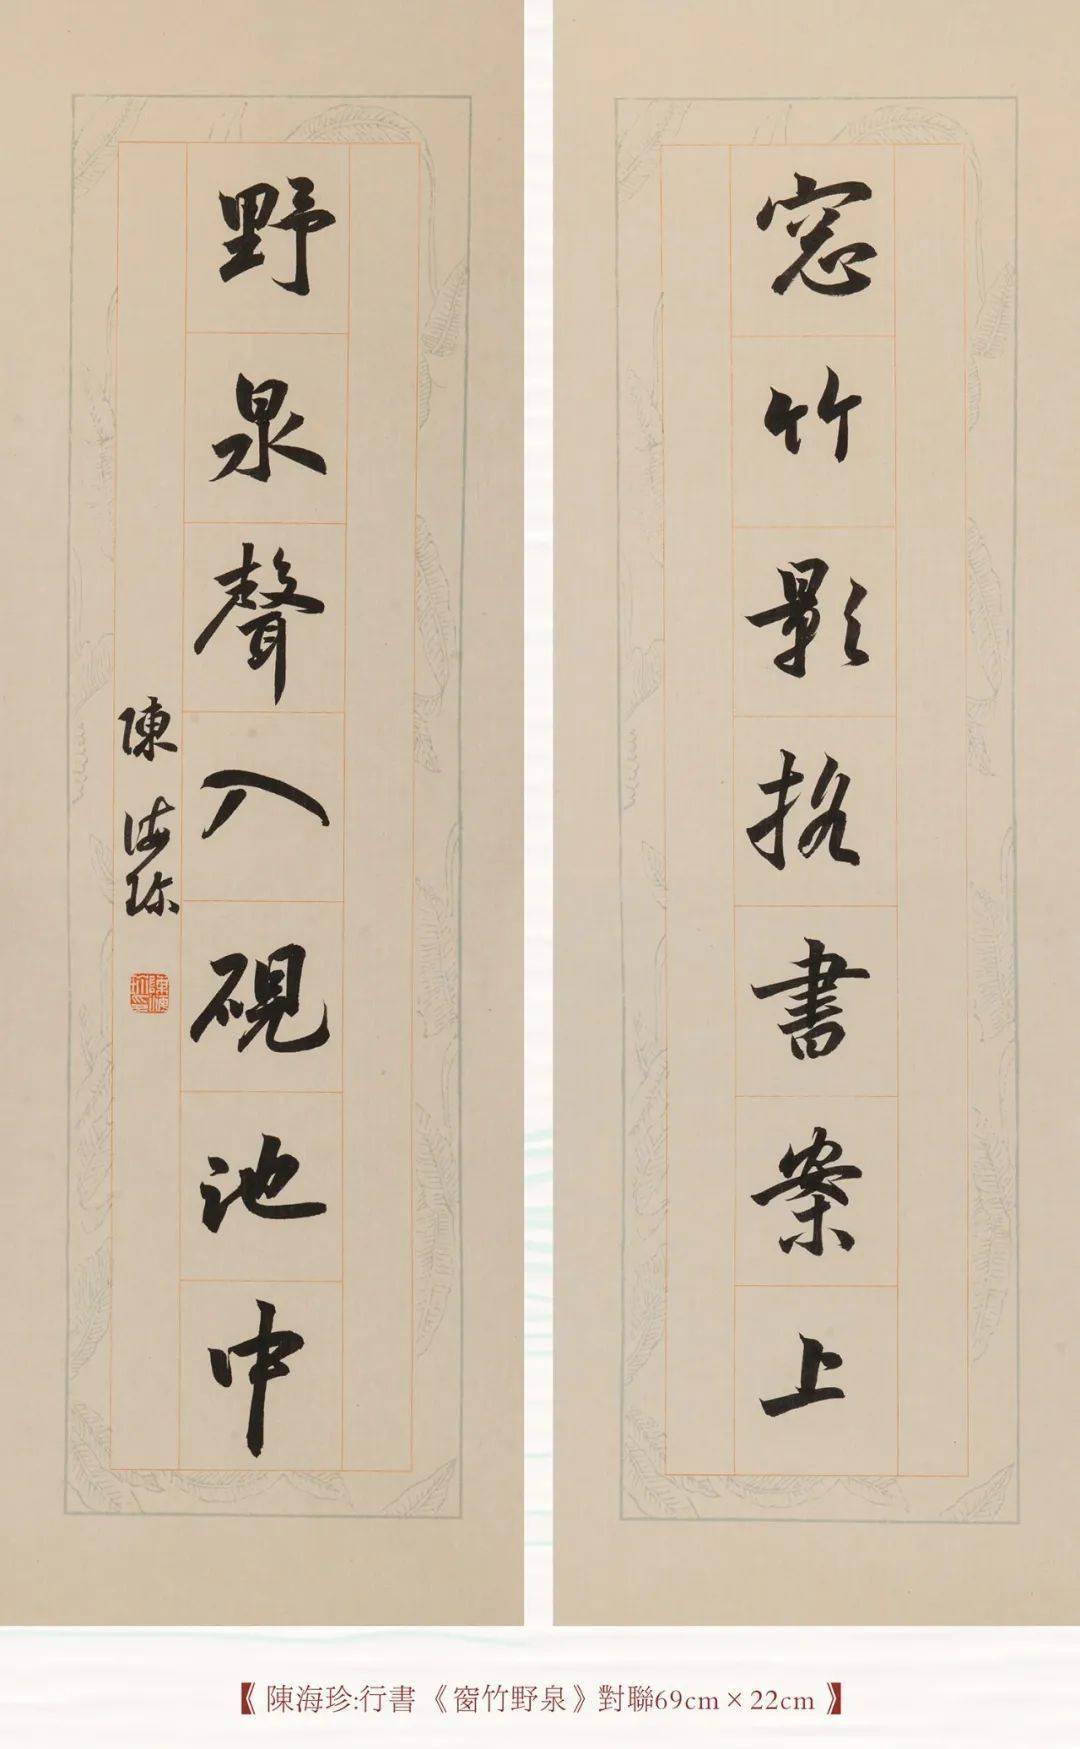 窓竹影摇書案上
野泉聲入硯池中
陳海珍
《陳海珍:行書《窗竹野泉》對聯69cm×22cm》